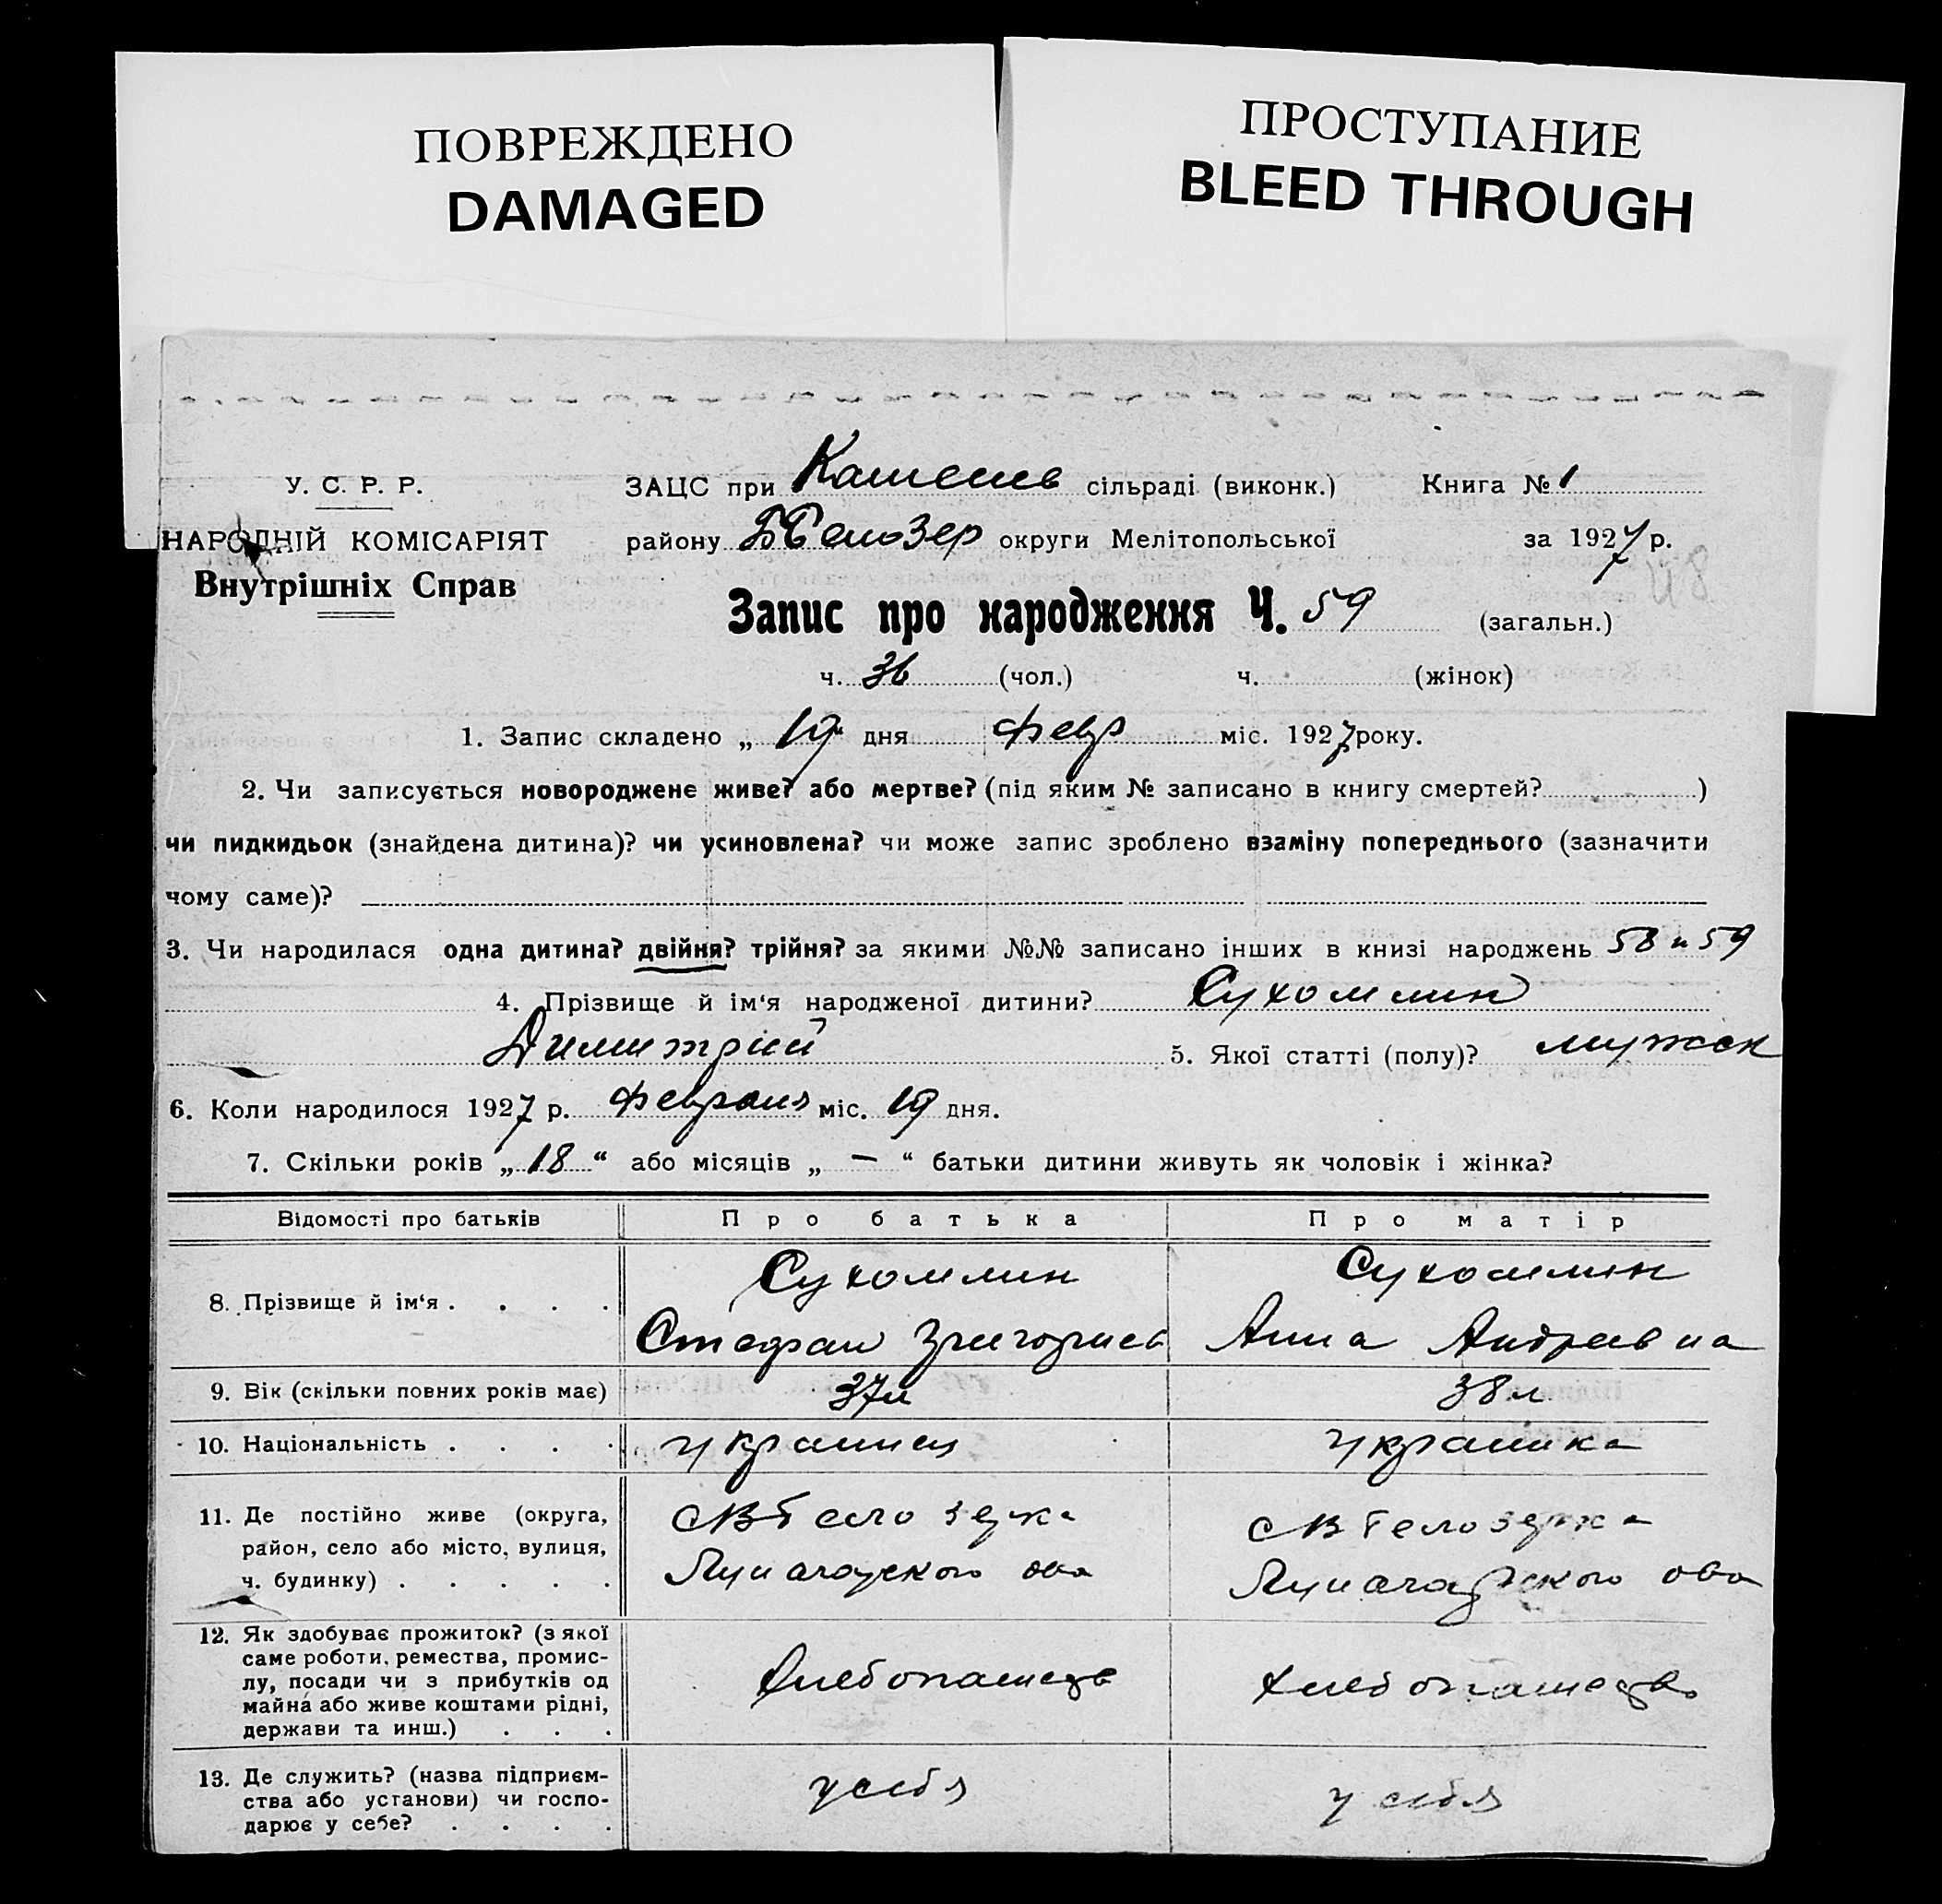 ПОВРЕЖДЕНО
DAMAGED
ПРОСТУПАНИЕ
BLEED THROUGH
У. С. Р. Р.
НАРОДНІЙ КОМІСАРІЯТ
Внутрішніх Справ
ЗАЦС при сільраді (виконк.) Книга № 1
району округи Мелітопольської за 1927 р.
Запис про народження Ч. 59 (загальн.)
ч. 36 (чол.) ч. (жінок)
1. Запис складено „ 19 “ дня февр міс. 1927 року.
2. Чи записується новороджене живе? або мертве? (під яким № записано в книгу смертей? )
чи пидкидьок (знайдена дитина)? чи усиновлена? чи може запис зроблено взаміну попереднього (зазначити
чому саме)?
3. Чи народилася одна дитина? двійня? трійня? за якими №№ записано інших в книзі народжень 58 и 59
4. Прізвище й ім‘я народженої дитини? Сухомлин
Димитрий 5. Якої статті (полу)? мужск
6. Коли народилося 1927 р. февраля міс. 19 дня.
7. Скільки років „ 18 “ або місяців „ — “ батьки дитини живуть як чоловік і жінка?
Відомості про батьків Про батька Про матір
8. Прізвище й ім‘я . . . . Сухомлин Сухомлин
Стефан Григорьев Анна Андреевна
9. Вік (скільки повних років має) 37 л 38 л
10. Національність . . . . украинец украинка
11. Де постійно живе (округа,
район, село або місто, вулиця,
ч. будинку) . . . . .
Белозерка
Белозерка
12. Як здобуває прожиток? (з якої
саме роботи, ремества, промис-
лу, посади чи з прибутків од
майна або живе коштами рідні,
держави та инш.) . . .
хлебопашество
хлебопашество
13. Де служить? (назва підприєм-
ства або установи) чи госпо-
дарює у себе? . . . .
у себя
у себя